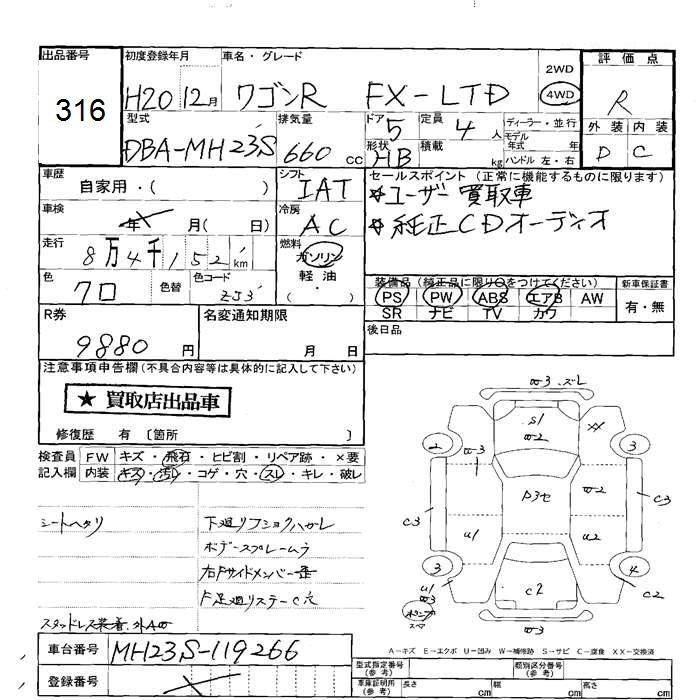 出品番号 初度登録年月 車名・グレード 2WD 評価点
316 H20 12月 ワゴンR FX-LTD 4WD R
型式 排気量 ドア 5 定員 4人 ディーラー・並行 外装 内装
DBA-MH23S 660cc 形状 HB 積載 kg モデル年式 年 D C
ハンドル 左・右
車歴 シフト セールスポイント (正常に機能するものに限ります)
自家用・( ) IAT ☆ユーザー買取車
車検 年 月( 日) 冷房 AC ☆純正CDオーディオ
走行 8万4千152km 燃料 ガソリン
軽油
・( )
色 クロ 色替 色コード ZJ3
装備品 (純正品に限り○をつけてください) 新車保証書
PS PW ABS エアB AW 有・無
SR ナビ TV カワ
R券 9880円 名変通知期限 月 日 後日品
注意事項申告欄(不具合内容等は具体的に記入して下さい)
★ 買取店出品車
修復歴 有 〔箇所 〕
検査員 FW キズ・飛石・ヒビ割・リペア跡・×要
記入欄 内装 キズ・汚レ・コゲ・穴・スレ・キレ・破レ
シートヘタリ
右Fサイドメンバー歪
F足廻リステーC穴
w3.ズレ
S1
w2
XX
2 3
w3
P3セ w2
C3 C3
u1 u2
3 4
u1
w3
C2 C2
w3
A－キズ E－エクボ U－凹み W－補修跡 S－サビ C－腐食 XX－交換済
車台番号 MH23S-119266
登録番号
型式指定番号(参考) 類別区分番号(参考)
車庫証明用(参考) 長さ cm 幅 cm 高さ cm